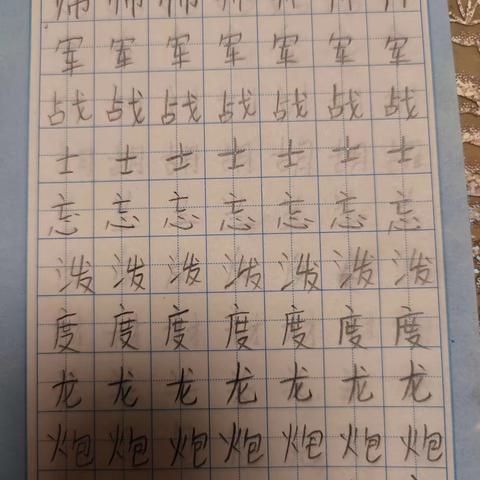 军 军 军 军 军 军 军
战 战 战 战 战 战 战
士 士 士 士 士 士 士
忘 忘 忘 忘 忘 忘 忘
泼 泼 泼 泼 泼 泼 泼
度 度 度 度 度 度 度
龙 龙 龙 龙 龙 龙 龙
炮 炮 炮 炮 炮 炮 炮